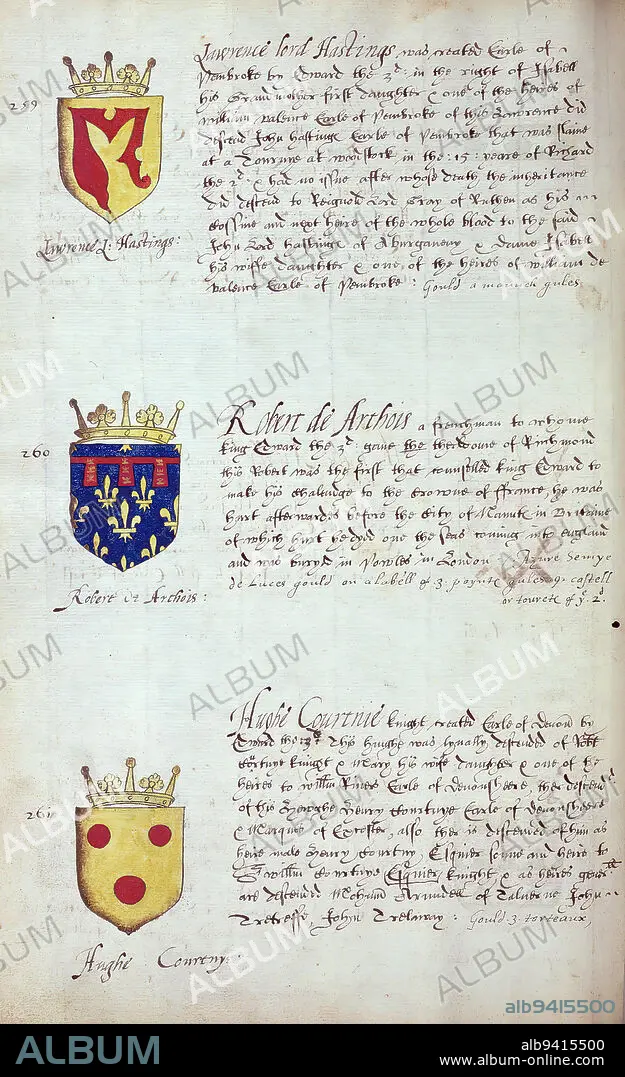 259
Lawrence lord Hastings was created Earle of
Penbroke by Edward the 3d: in the right of Isabell
his Grandmother first daughter & one of the heires of
William Valence Earle of Penbroke of this Lawrence did
descend John Hastinge Earle of Penbroke that was slaine
at a Tourney at woodstock in the :15: yeare of Richard
the 2d: & had no issue after whose death the inheritance
did descend to Reignold Lord Gray of Ruthen as his
Cossine and next heire of the whole blood to the said
John Lord Hastinge of Abergaveny & dame Isabell
his wiffe daughter & one of the heires of William de
Valence Earle of Penbroke: Gould a maunch gules
Lawrence L: Hastings:
260
Robert de Arthois a frenchman to whome
King Edward the 3d: gave the Earldome of Richmond
this Robert was the first that counselled King Edward to
make his Chalendge to the Crowne of ffrance, he was
hurt afterwardes before the City of in Britaine
of which hurt he dyed one the seas coming into England
and was buryed in Powles in London. Azure semye
de Luces gould on a labell of 3. poynts gules 9. castell
or tourets of ye 2d.
Robert de Arthois:
261
Hughe Courtnie knight created Earle of Devon by
Edward the 3d This Hughe was lynally descended of Robt
Cortnye knight & Mary his wife daughter & one of the
heires to willm Rivers Earle of Devonsheere, ther descend
of this Hewghe Henry Cortnye Earle of Devonsheere
& Marques of Exceter, also ther is discended of him as
heire male Henry Courtny Esquier sonne and heire to
Sr willm Cortnye Esquier knight & as heires
are descended Arundell of Talverne John
Tretreffe, John Trelaway: Gould 3. torteaux,
Hughe Courtny:
ALBUM
alb9415500
ALBUM
alb9415500
www.album-online.com